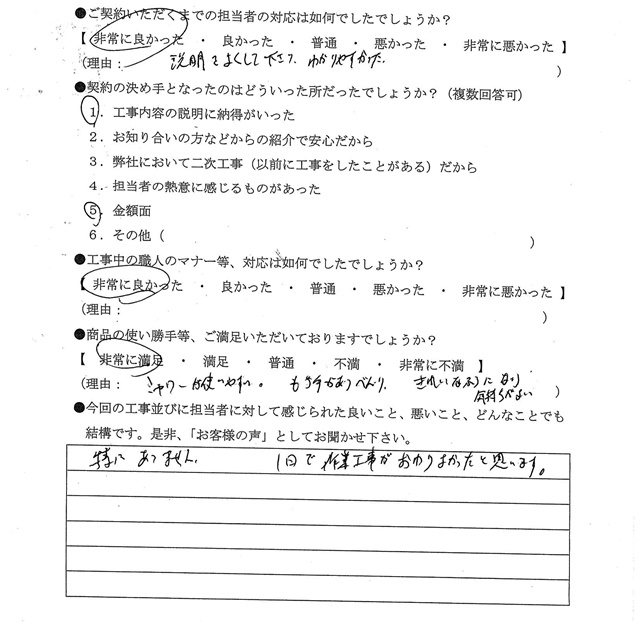 ●ご契約いただくまでの担当者の対応は如何でしたでしょうか？
【 非常に良かった ・ 良かった ・ 普通 ・ 悪かった ・ 非常に悪かった 】
(理由： 説明をよくして下さって わかりやすかった。 )
●契約の決め手となったのはどういった所だったでしょうか？（複数回答可）
1．工事内容の説明に納得がいった
2．お知り合いの方などからの紹介で安心だから
3．弊社において二次工事（以前に工事をしたことがある）だから
4．担当者の熱意に感じるものがあった
5．金額面
6．その他（ ）
●工事中の職人のマナー等、対応は如何でしたでしょうか？
【 非常に良かった ・ 良かった ・ 普通 ・ 悪かった ・ 非常に悪かった 】
(理由： )
●商品の使い勝手等、ご満足いただいておりますでしょうか？
【 非常に満足 ・ 満足 ・ 普通 ・ 不満 ・ 非常に不満 】
(理由： シャワーは使いやすい。 もあり べんり、 きれいな になり
気持ちがよい )
●今回の工事並びに担当者に対して感じられた良いこと、悪いこと、どんなことでも
結構です。是非、「お客様の声」としてお聞かせ下さい。
特に ありません。 1日で 作業工事が おわりよかったと思います。